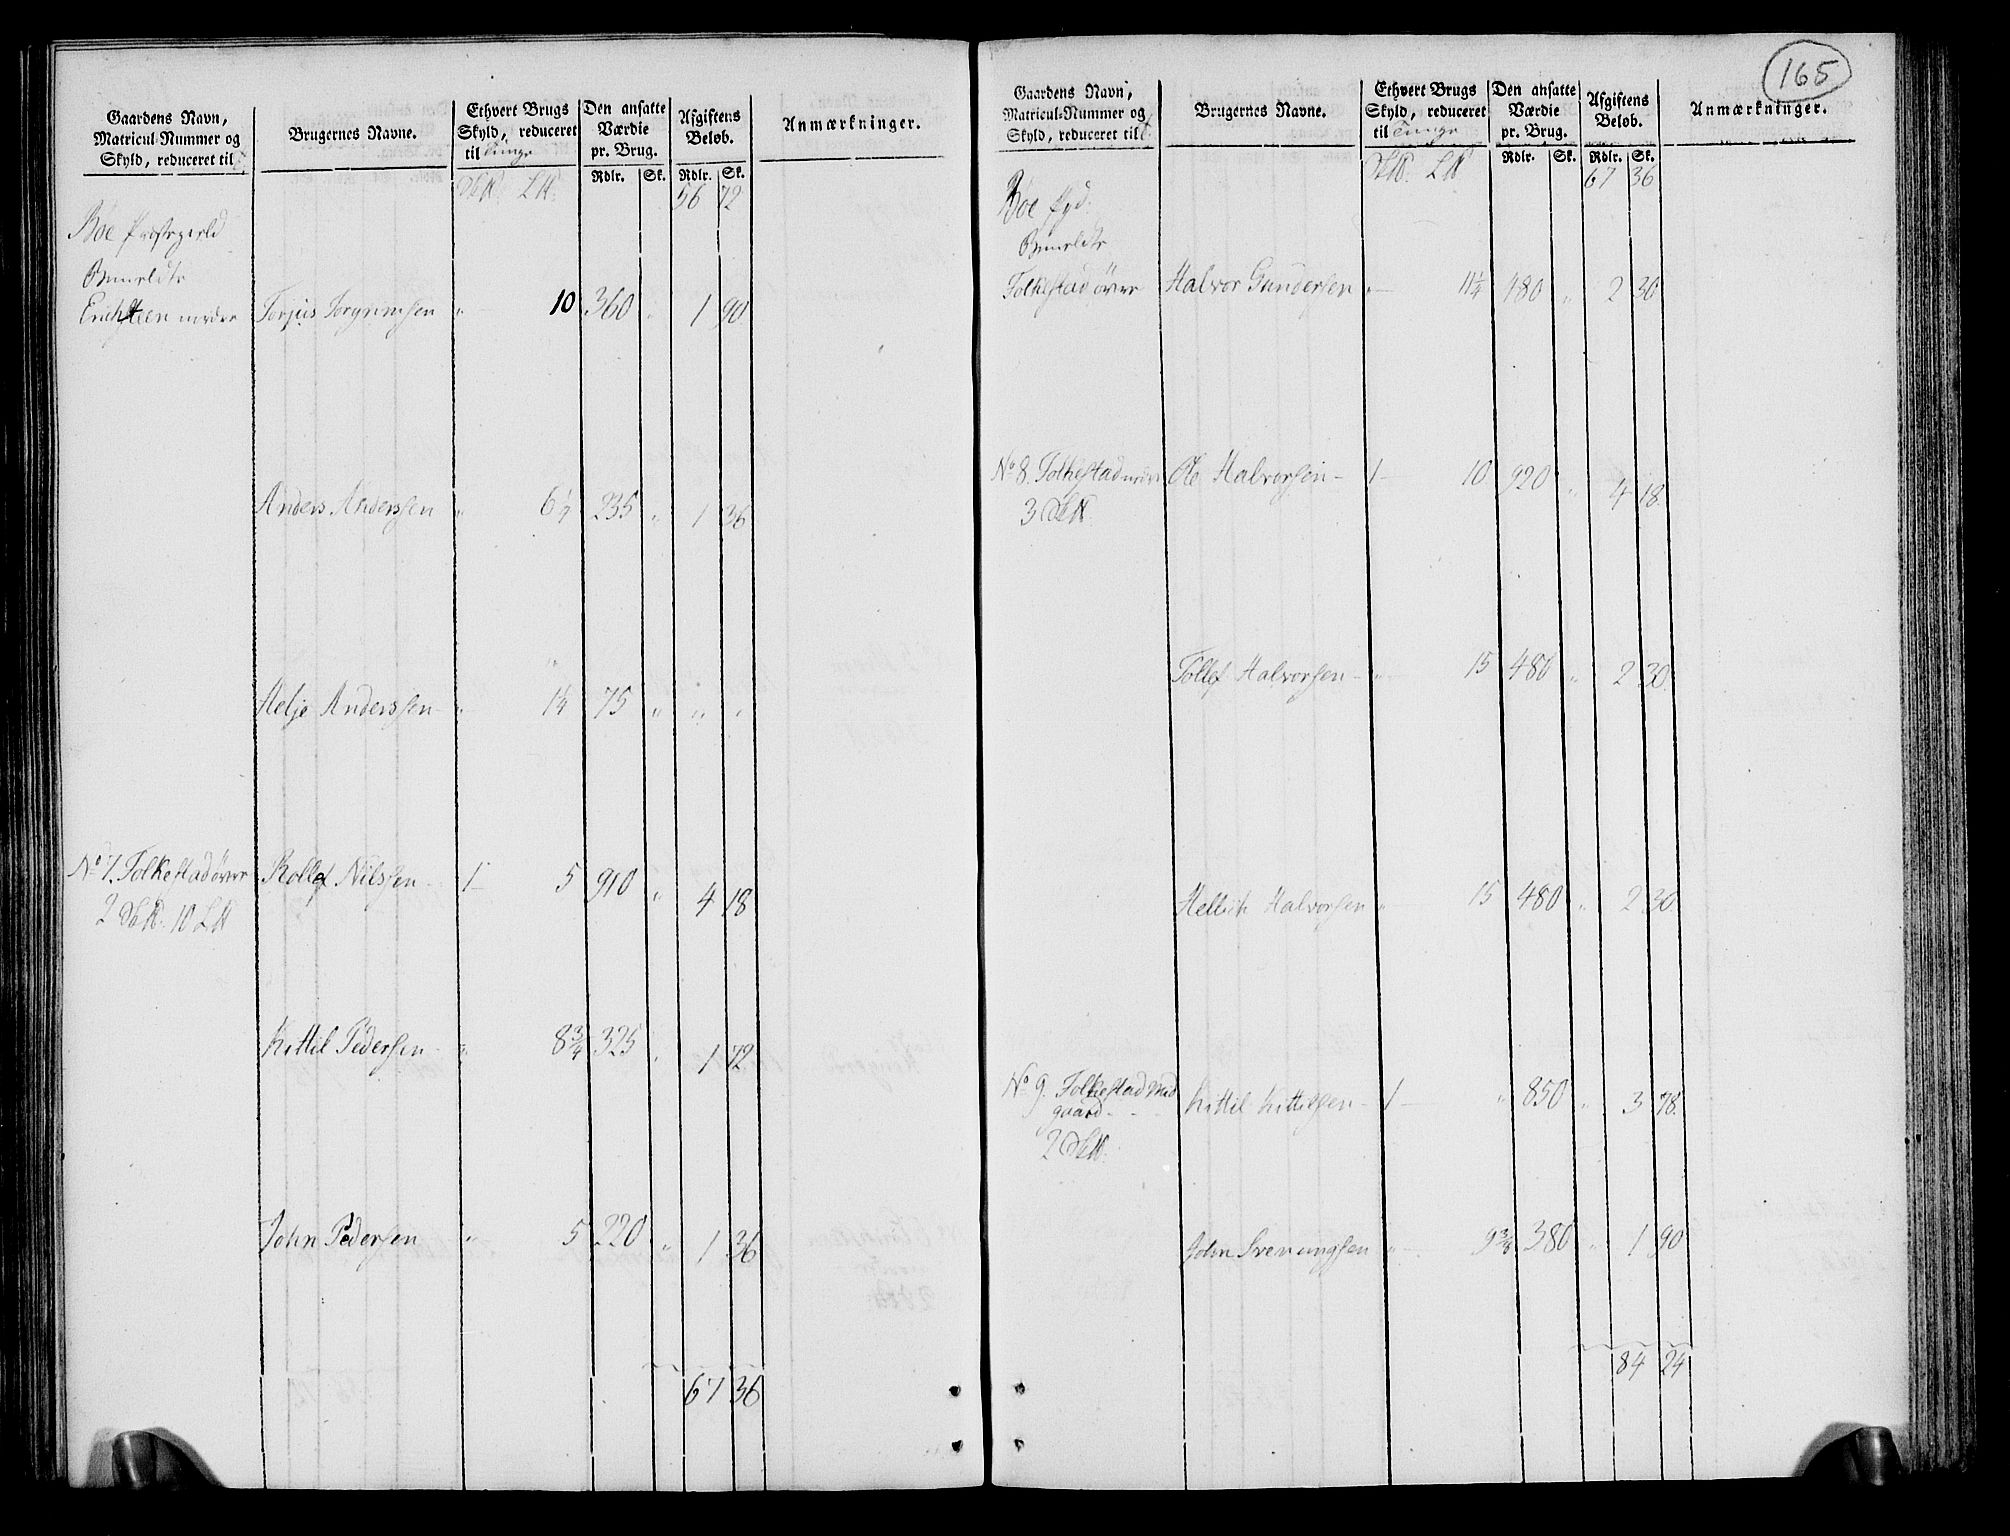 165
Gaardens Navn, Matricul-Nummer og Skyld, reduceret til
Brugernes Navne.
Ethvert Brugs Skyld, reduceret til Tunge
Den ansatte Værdie pr. Brug.
Afgiftens Beløb.
Anmærkninger.
Rdlr. Sk. Rdlr. Sk.
56 72
Bøe
Torjus Torgrimsen " 10 360 " 1 90
Anders Anderssen " 6 1/4 235 " 1 36
Helje Anderssen " 1 1/4 75 " " "
No 7. Folkestad øvre Rollef Nilssen 1 5 910 " 4 18
2 10
Kittil Pedersen " 8 3/4 325 " 1 72
John Pedersen " 5 220 " 1 36
67 36
Gaardens Navn, Matricul-Nummer og Skyld, reduceret til
Brugernes Navne.
Ethvert Brugs Skyld, reduceret til Tunge
Den ansatte Værdie pr. Brug.
Afgiftens Beløb.
Anmærkninger.
Rdlr. Sk. Rdlr. Sk.
67 36
Bøe
Folkestad øvre Halvor Gundersen " 11 1/4 480 " 2 30
No 8. Folkestad nedre Ole Halvorsen 1 10 920 " 4 18
3
Tollef Halvorsen " 15 480 " 2 30
Halvorsen " 15 480 " 2 30
No 9. Folkestad Mid Kittil Kittilsen 1 " 850 " 3 78
gaard
2
John Svenungsen " 9 3/8 380 " 1 90
84 24